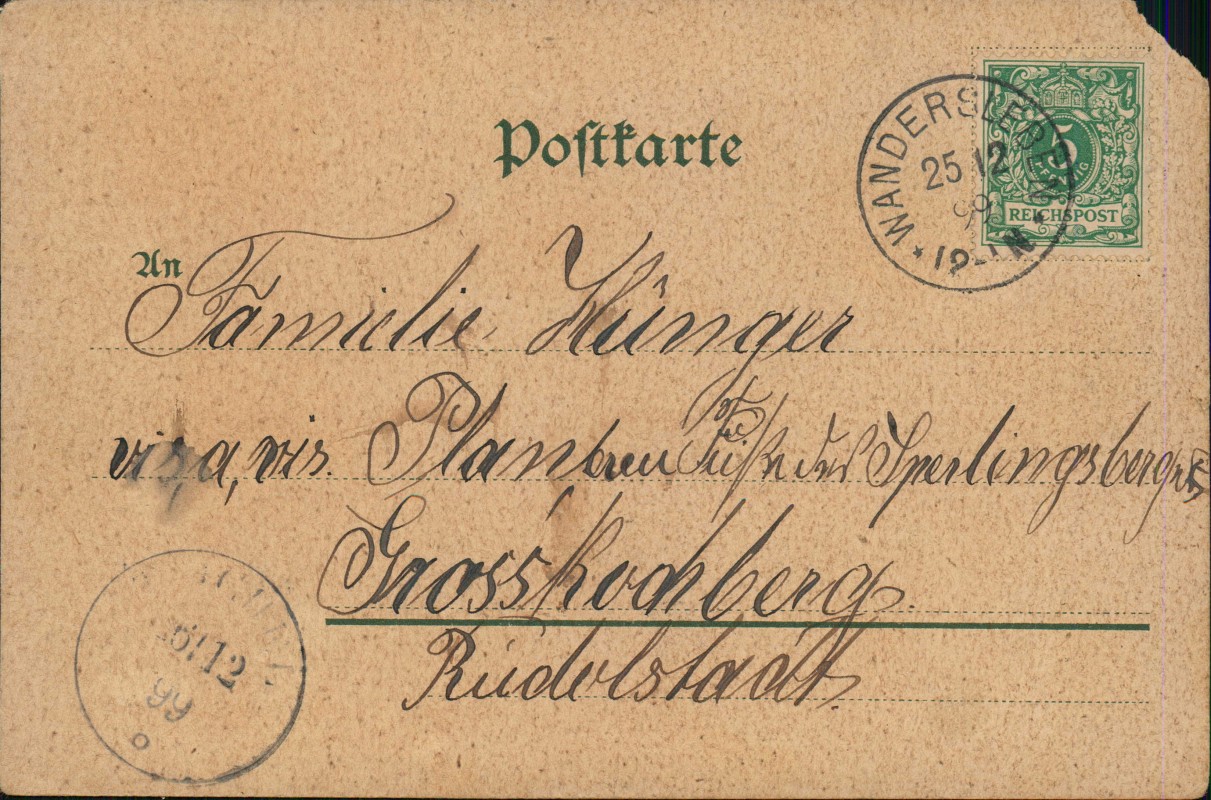 Postkarte
WANDERSLEBEN
25 12
99
* 12-1N *
5
PFENNIG
REICHSPOST
An Familie Hünger
vis, a, vis. Planbau Füße des Sperlingsberges
Grosskochberg.
Rudolstadt
/12
99